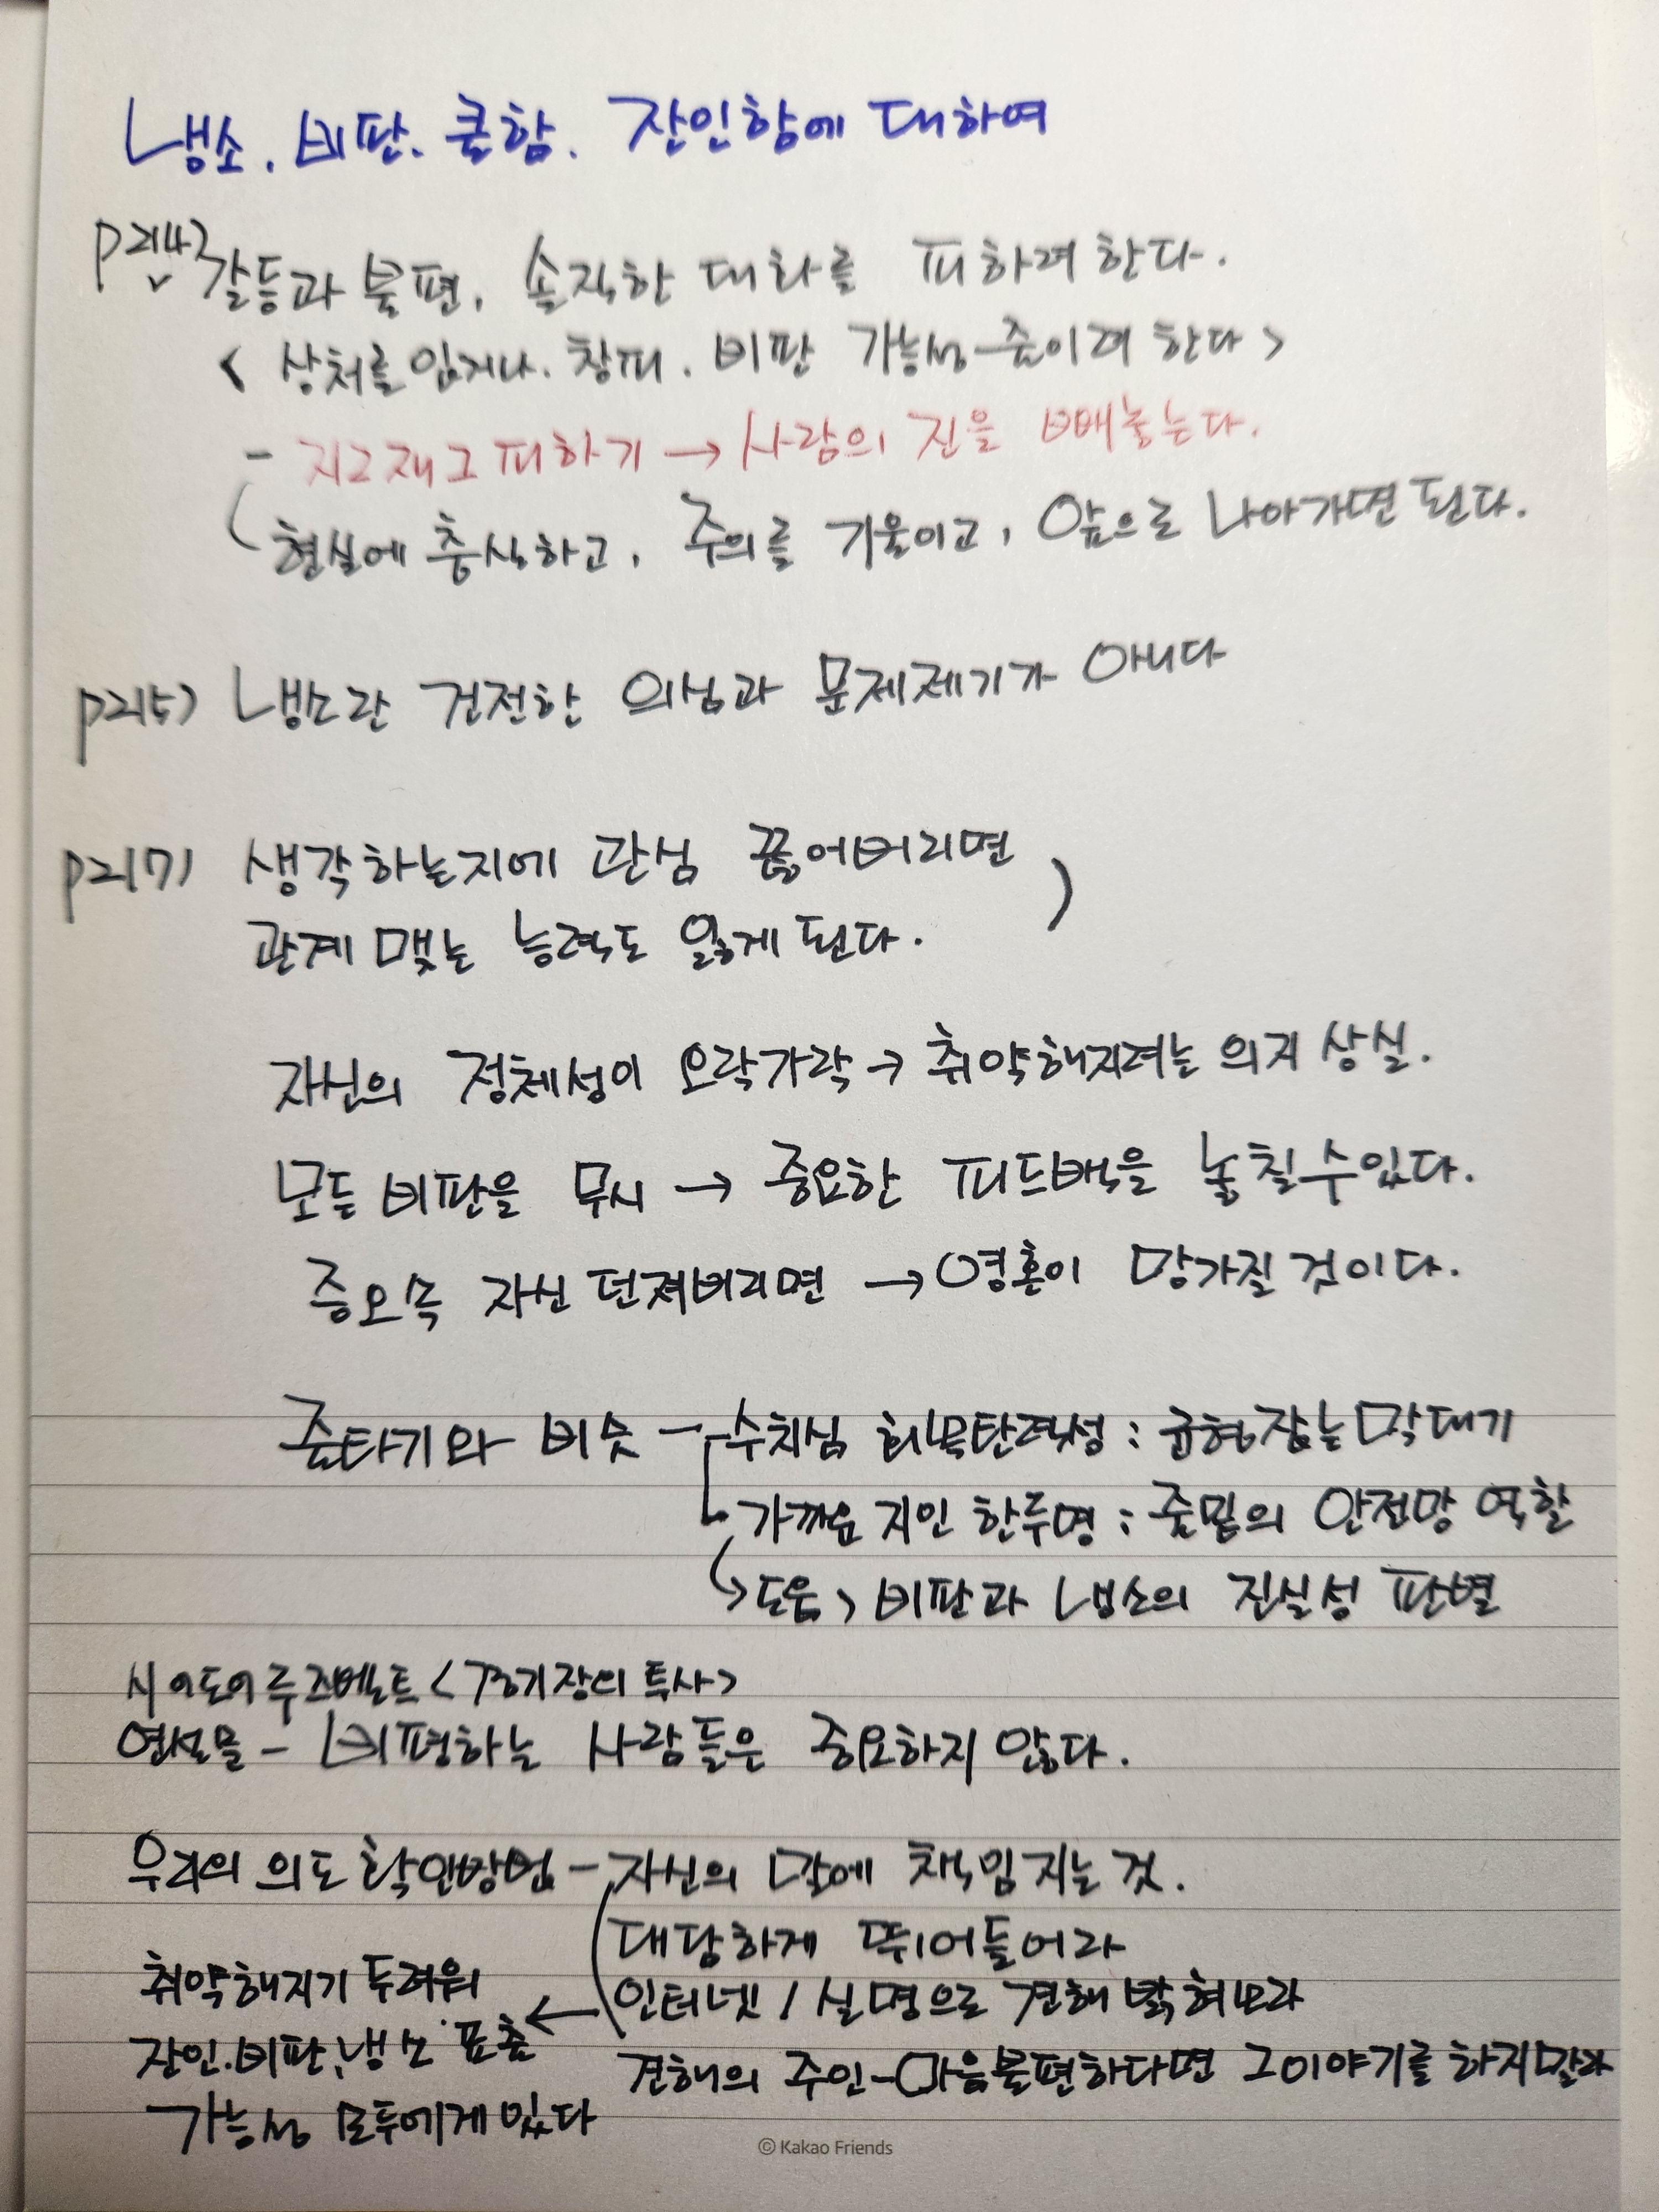 냉소. 비판. 쿨함. 잔인함에 대하여
p214) 갈등과 불편, 솔직한 대화를 피하려 한다.
< 상처를 입거나. 창피. 비판 가능성 줄이려 한다 >
- 지그재그 피하기 → 사람의 진을 빼놓는다.
현실에 충실하고, 주의를 기울이고, 앞으로 나아가면 된다.
p215) 냉소란 건전한 의심과 문제제기가 아니다
p217) 생각하는지에 관심 끊어버리면
관계 맺는 능력도 잃게 된다.
자신의 정체성이 오락가락 → 취약해지려는 의지 상실.
모든 비판을 무시 → 중요한 피드백을 놓칠 수 있다.
증오속 자신 던져버리면 → 영혼이 망가질 것이다.
줄타기와 비슷 - 수치심 회복탄력성 : 균형잡는 막대기
가까운 지인 한두명 : 줄밑의 안전망 역할
도움 > 비판과 냉소의 진실성 판별
시어도어 루즈벨트 < 경기장의 투사 >
연설문 - 비평하는 사람들은 중요하지 않다.
우리의 의도 확인방법 - 자신의 말에 책임 지는 것.
대담하게 뛰어들어라
취약해지기 두려워
인터넷 / 실명으로 견해 밝혀보라
잔인.비판,냉소 표출
견해의 주인 - 마음불편하다면 그이야기를 하지말라
가능성 모두에게 있다
© Kakao Friends